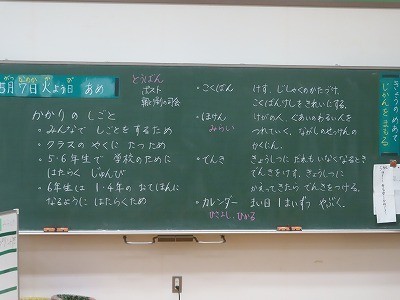 5月7日火よう日 あめ
がつ なのか か び
とうばん
ポスト
朝と帰りの司会
かかりのしごと
・みんなで しごとをするため
・クラスの やくに たつ ため
・5・6年生で 学校のために
はたらく じゅんび
・6年生は 1・4年の おてほんに
なるように はたらくため
・こくばん けす、じしゃくのかたづけ、
こくばんけしを きれいにする。
・ほけん けがの人、ぐあいのわるい人を
みらい つれていく、ながしのせっけんの
かくにん。
・でんき きょうしつに だれも いなくなるとき
でんきをけす、きょうしつに
かえってきたら でんきをつける。
・カレンダー まい日 1まいずつ やぶく。
ひさよし、ひかる
きょうのめあて
じかんをまもる